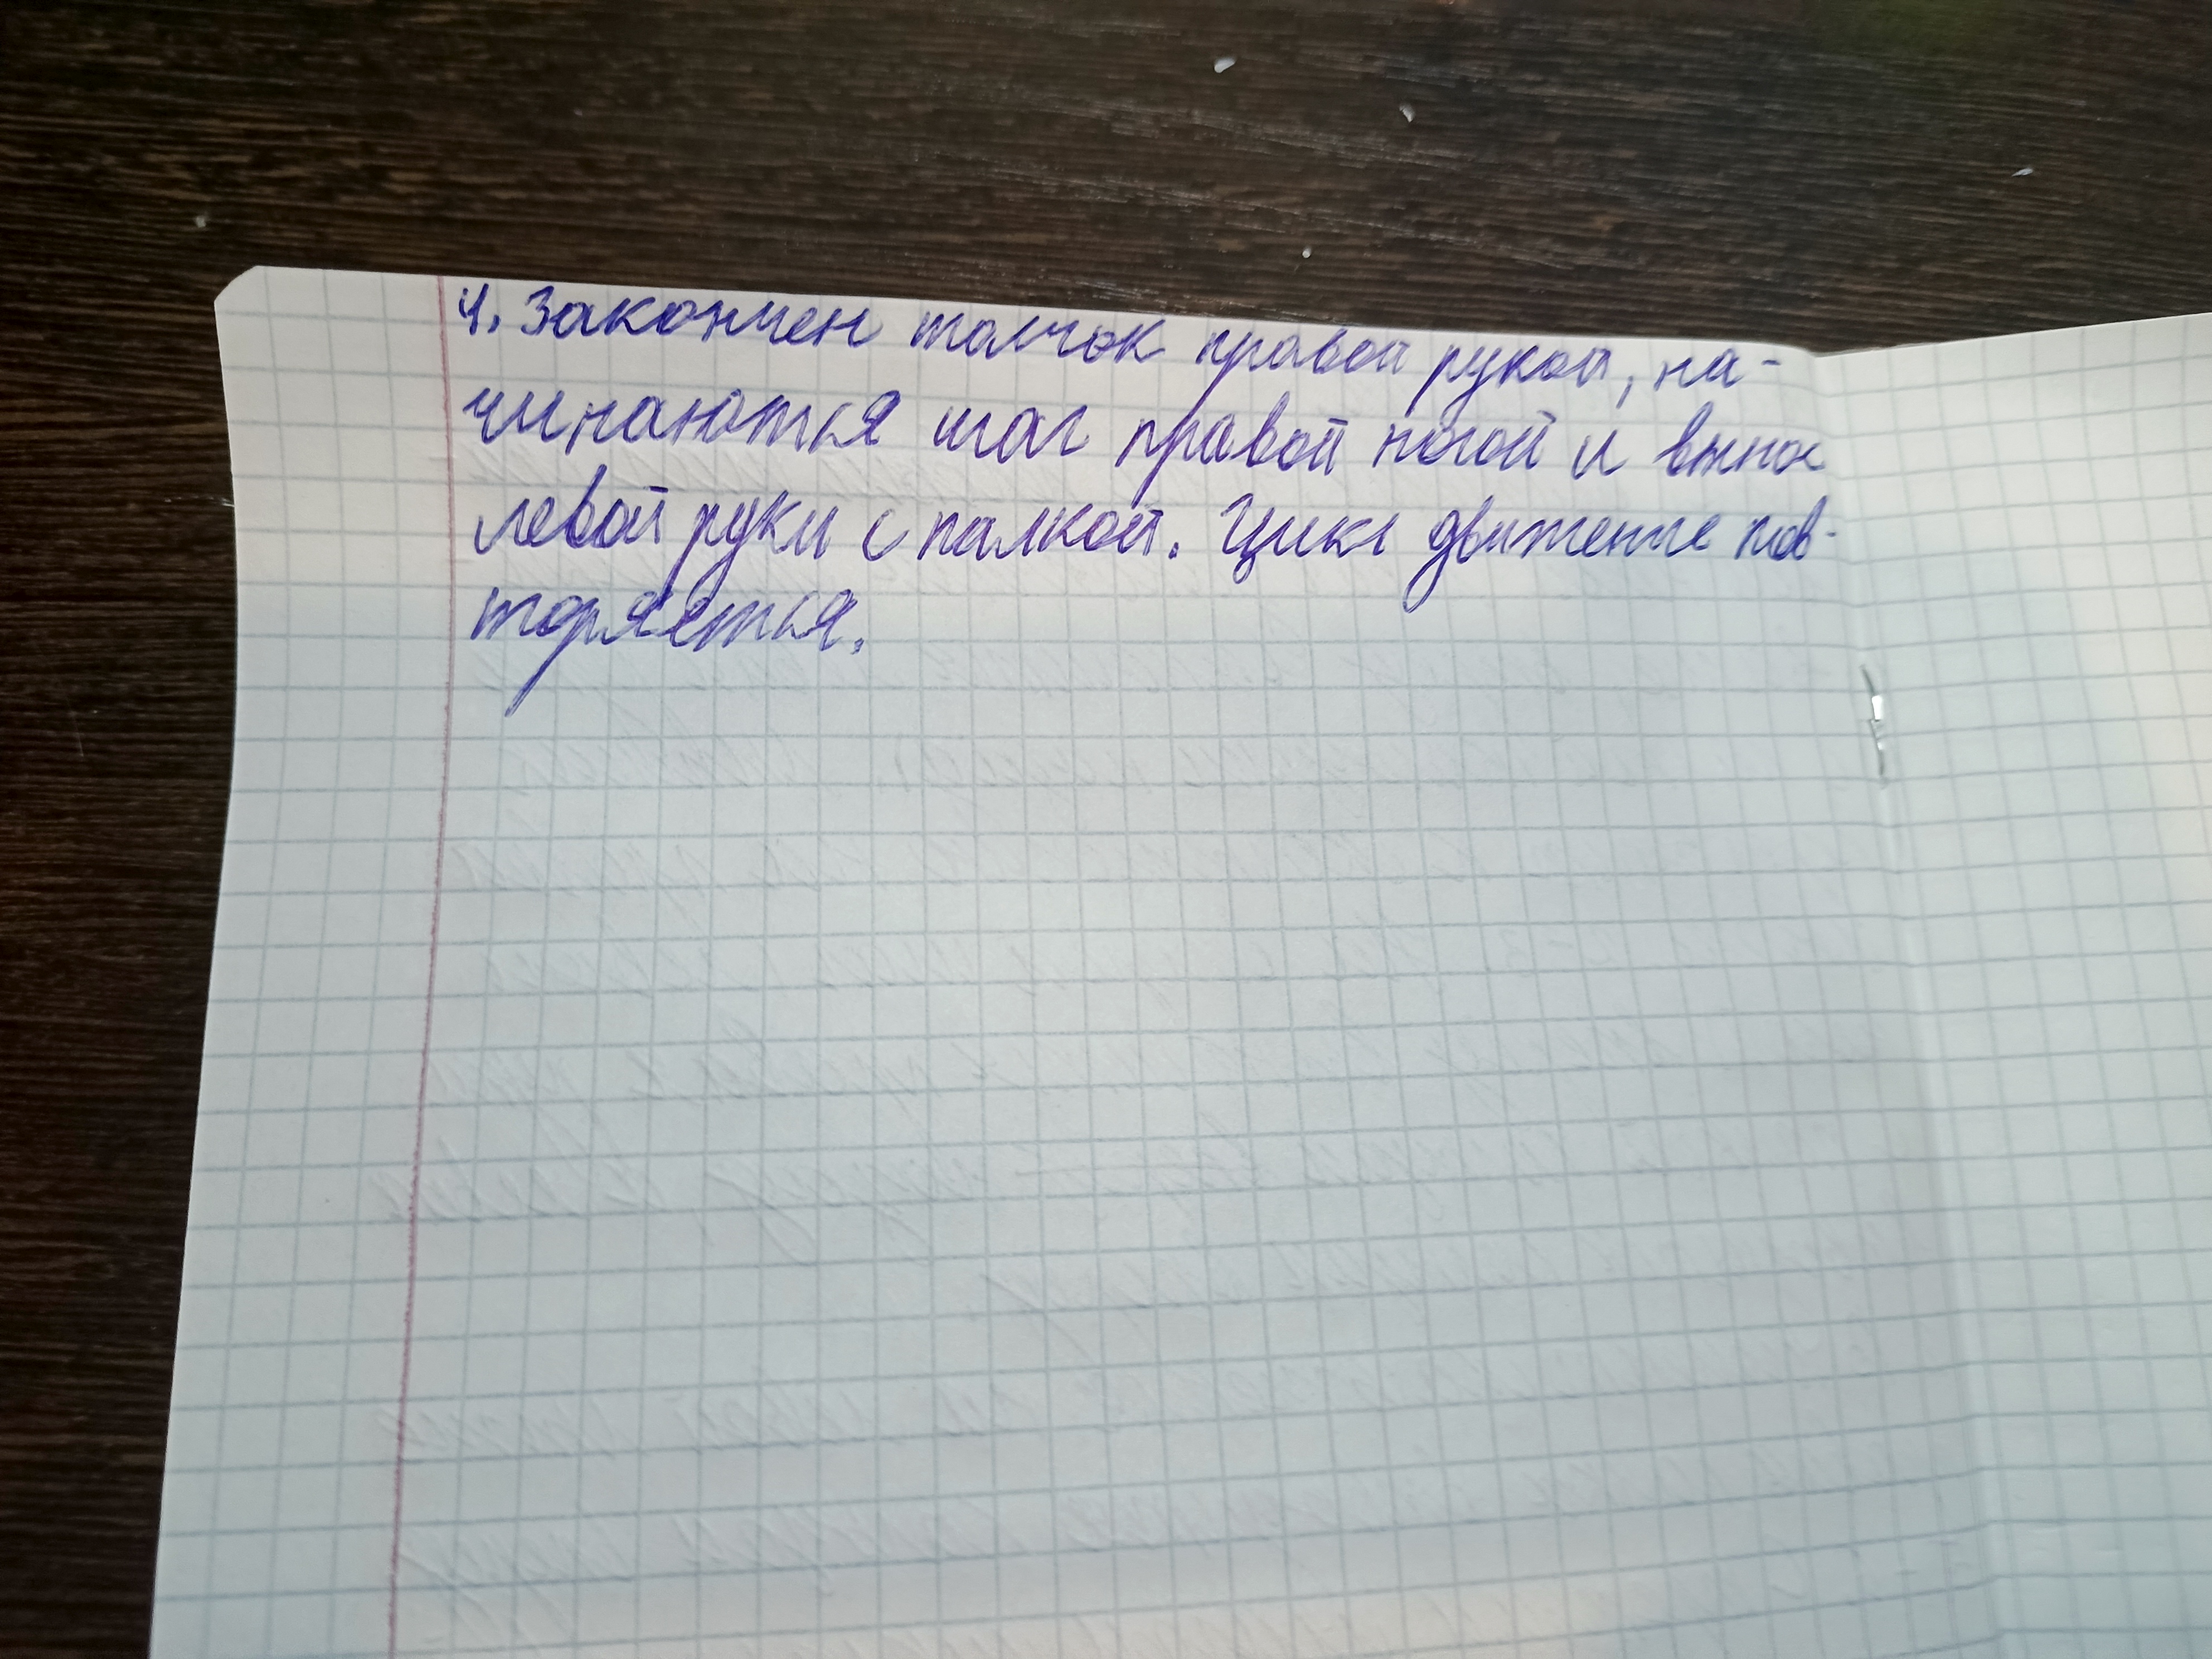 4. Закончен толчок правой рукой, на-
чинаются шаг правой ногой и вынос
левой руки с палкой. Цикл движение пов-
торяется.